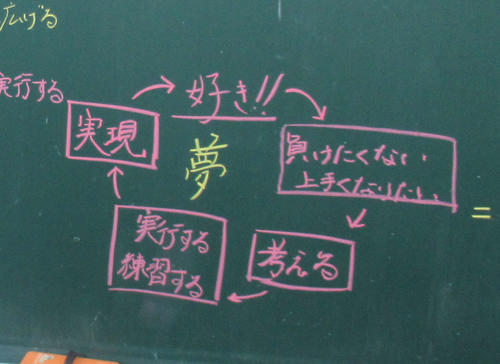 広げる
実行する
好き!!
実現
夢
負けたくない、
上手くなりたい、
=
実行する
練習する
考える